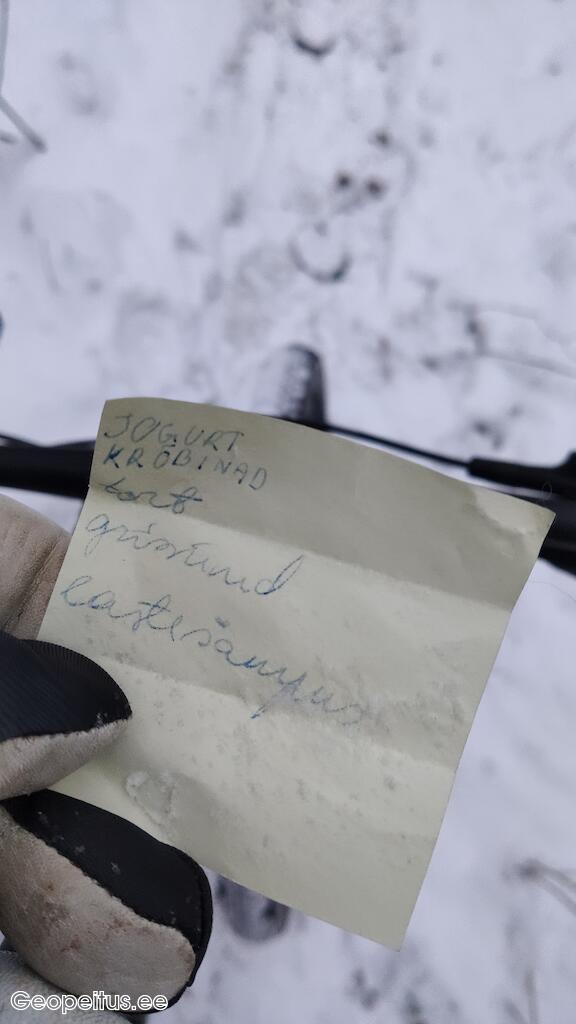 JOGURT
KRÕBINAD
tort
grissinid
lastešampus
Geopeitus.ee